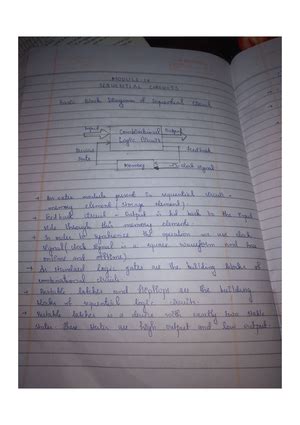 MODULE-IV
SEQUENTIAL CIRCUITS
Basic Block Diagram of Sequential Circuit
Input
Combinational
Logic Circuit
Output
State
feedback
Memory
clock signal
→ An extra module present in sequential circuit
memory element (storage element).
→ Feedback circuit - Output is fed back to the Input
side through this memory elements.
→ In order to synchronize the operation we use clock
signal (clock signal is a square waveform and has
ontime and offtime).
→ As standard logic gates are the building blocks of
combinational circuit.
→ Bistable latches and flipflops are the building
blocks of sequential logic circuits.
→ Bistable latches is a device with exactly two stable
states these states are high output and low output.